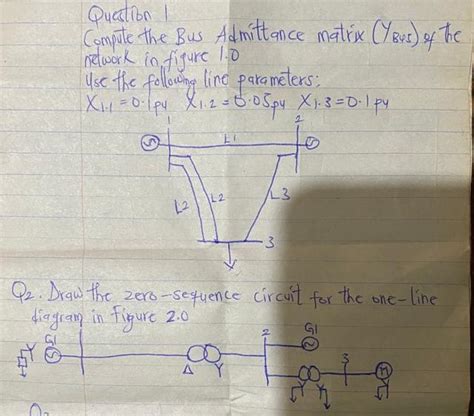 Question 1
Compute the Bus Admittance matrix (YBUS) of the
network in figure 1.0
Use the following line parameters:
X1.1 = 0.1pu X1.2 = 0.05pu X1.3 = 0.1pu
1
2
L1
L2
L2
L3
3
Q2. Draw the zero-sequence circuit for the one-line
diagram in figure 2.0
G1
Y
Δ
Y
2
G1
3
M
Y
Y
Y